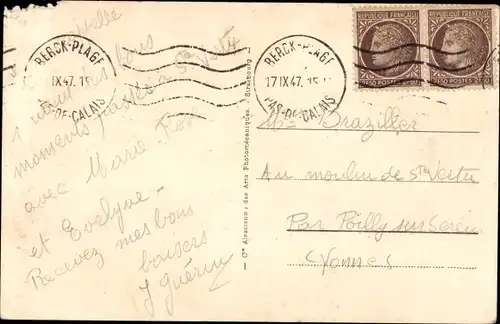 BERCK-PLAGE
IX.47.
PAS-DE-CALAIS
BERCK-PLAGE
17 IX 47.
PAS-DE-CALAIS
REPUBLIQUE FRANÇAISE
POSTES
REPUBLIQUE FRANÇAISE
POSTES
bons
moments passés à Ste Vertu
avec Marie
et Evelyne -
Recevez mes bons
baisers
J Guérin
— Cie Alsacienne des Arts Photomécaniques - Strasbourg —
Me Braziller
Au moulin de Ste Vertu
Par Poilly sur Serein
(Yonne)